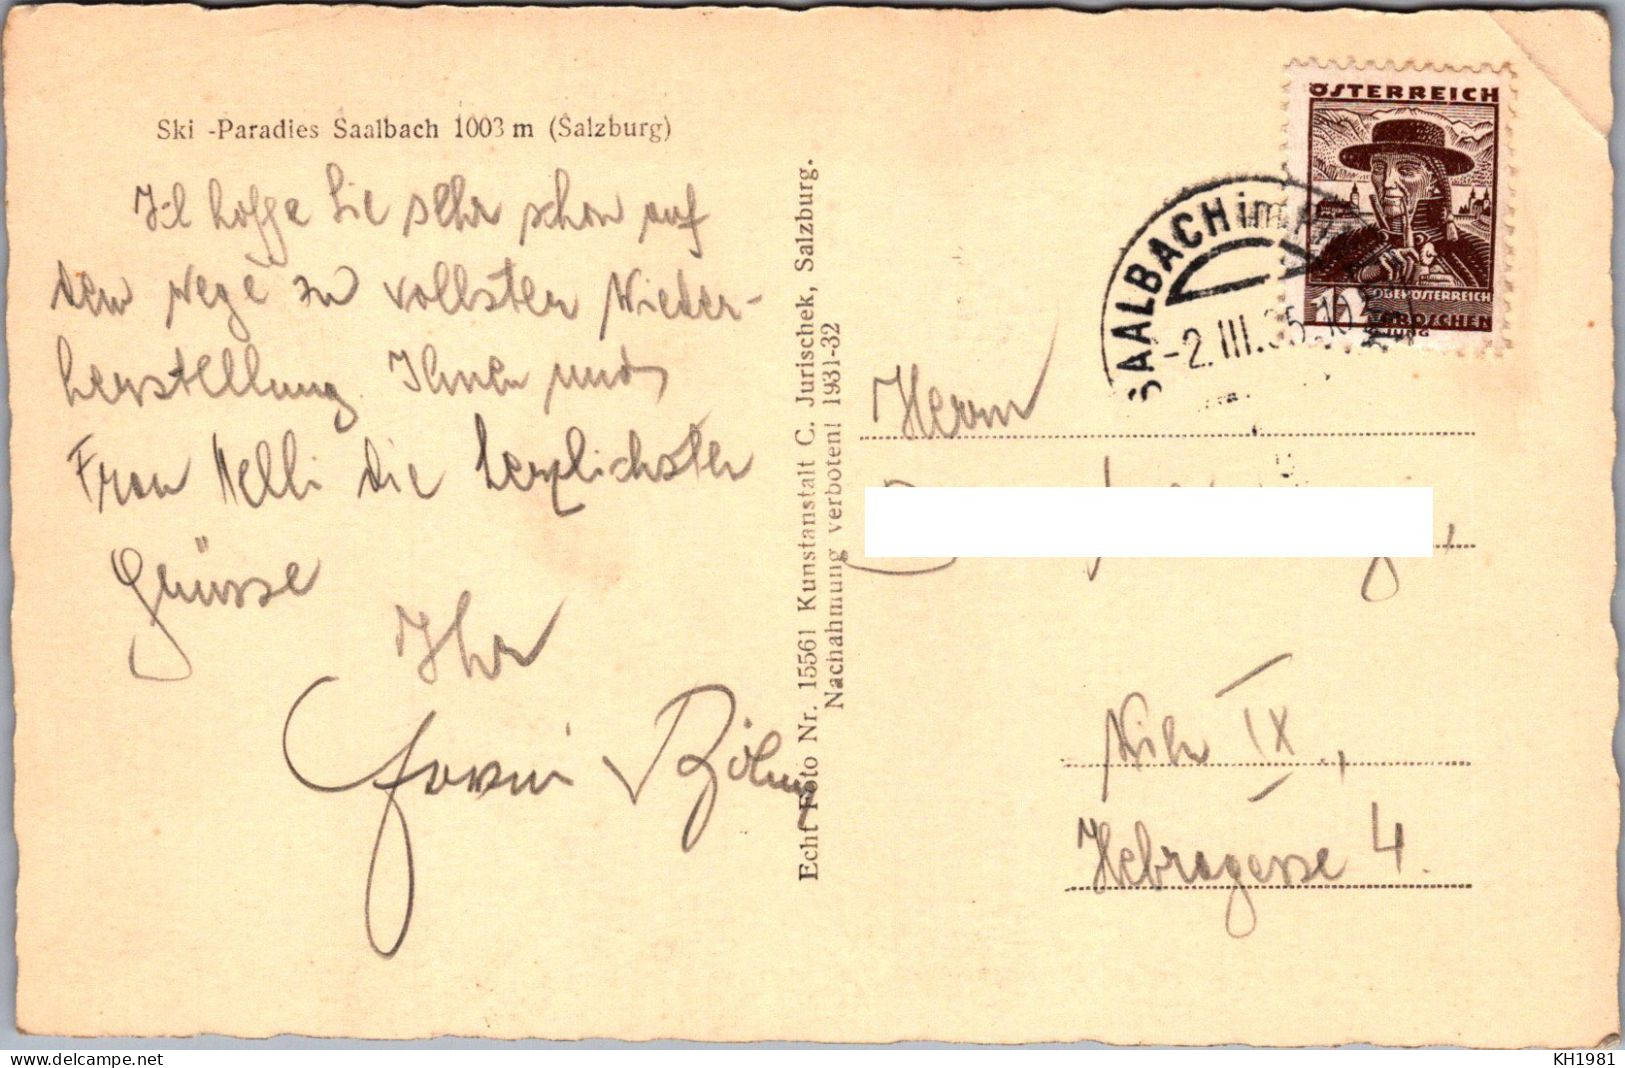 Ski -Paradies Saalbach 1003 m (Salzburg)
Ich hoffe Sie sehr schon auf
dem Wege zu vollster Wieder-
herstellung. Ihnen und
Frau Nelli die herzlichsten
Grüsse
Ihr
Erwin Böhm
Echt Foto Nr. 15561 Kunstanstalt C. Jurischek, Salzburg.
Nachahmung verboten! 1931-32
ÖSTERREICH
OBERÖSTERREICH
GROSCHEN
JUNG
SAALBACH im
-2.III.35.10
Herrn
Wien IX.,
Hebragasse 4.
delcampe.net
KH1981